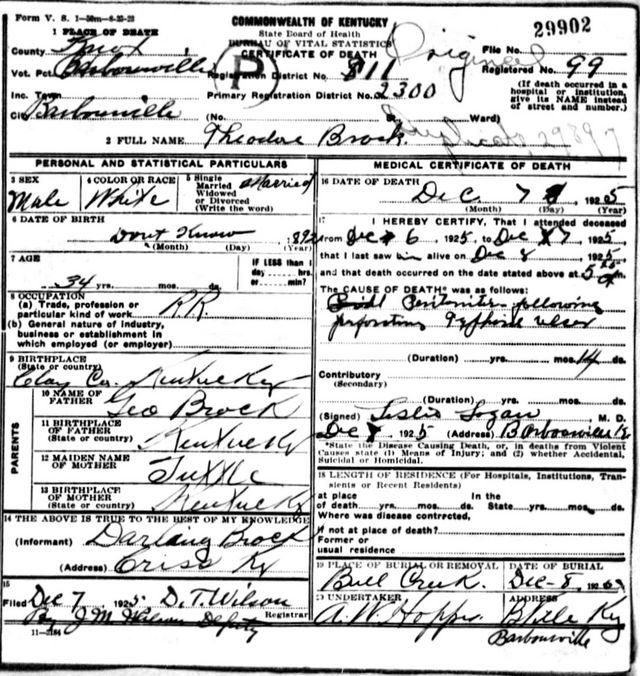 Form V. S. 1—50m—8-23-23
COMMONWEALTH OF KENTUCKY
State Board of Health
BUREAU OF VITAL STATISTICS
CERTIFICATE OF DEATH
Original
29902
1 PLACE OF DEATH
County Knox
Vot. Pct. Barbourville
Inc. Town
City Barbourville
P
Registration District No. 811
Primary Registration District No. 2300
(No. St., Ward)
File No.
Registered No. 99
(If death occurred in a
hospital or institution,
give its NAME instead
of street and number.)
2 FULL NAME Theodore Brock
PERSONAL AND STATISTICAL PARTICULARS
3 SEX
Male
4 COLOR OR RACE
White
5 Single
Married
Widowed
or Divorced
(Write the word)
Married
6 DATE OF BIRTH
Dont Know
(Month) (Day) (Year)
7 AGE
34 yrs. mos. ds.
IF LESS than 1
day hrs.
or min?
8 OCCUPATION
(a) Trade, profession or
particular kind of work RR.
(b) General nature of industry,
business or establishment in
which employed (or employer)
9 BIRTHPLACE
(State or country)
Clay Co. Kentucky
PARENTS
10 NAME OF
FATHER Geo Brock
11 BIRTHPLACE
OF FATHER
(State or country) Kentucky
12 MAIDEN NAME
OF MOTHER
13 BIRTHPLACE
OF MOTHER
(State or country) Kentucky
14 THE ABOVE IS TRUE TO THE BEST OF MY KNOWLEDGE
(Informant) Brock
(Address) Ky
15
Filed Dec 7 1925 D. T. Wilson
Registrar
By J M Wilson Deputy
11—3184
MEDICAL CERTIFICATE OF DEATH
16 DATE OF DEATH
Dec. 7 1925
(Month) (Day) (Year)
17
I HEREBY CERTIFY, That I attended deceased
from Dec 6, 1925, to Dec 7, 1925
that I last saw him alive on Dec 8 1925,
and that death occurred on the date stated above at 5
The CAUSE OF DEATH* was as follows:
Peritonitis following
perforating Typhoid ulcer
(Duration) yrs. mos. 14 ds.
Contributory
(Secondary)
(Duration) yrs. mos. ds.
(Signed) Leslie Logan M. D.
Dec 1925 (Address) Barbourville Ky
*State the Disease Causing Death, or, in deaths from Violent
Causes state (1) Means of Injury; and (2) whether Accidental,
Suicidal or Homicidal.
18 LENGTH OF RESIDENCE (For Hospitals, Institutions, Tran-
sients or Recent Residents)
at place In the
of death yrs. mos. ds. State yrs. mos. ds.
Where was disease contracted,
if not at place of death?
Former or
usual residence
19 PLACE OF BURIAL OR REMOVAL
Bull Creek.
DATE OF BURIAL
Dec-8, 192
20 UNDERTAKER
A. W. Hopper
ADDRESS
B Ville Ky
Barbourville